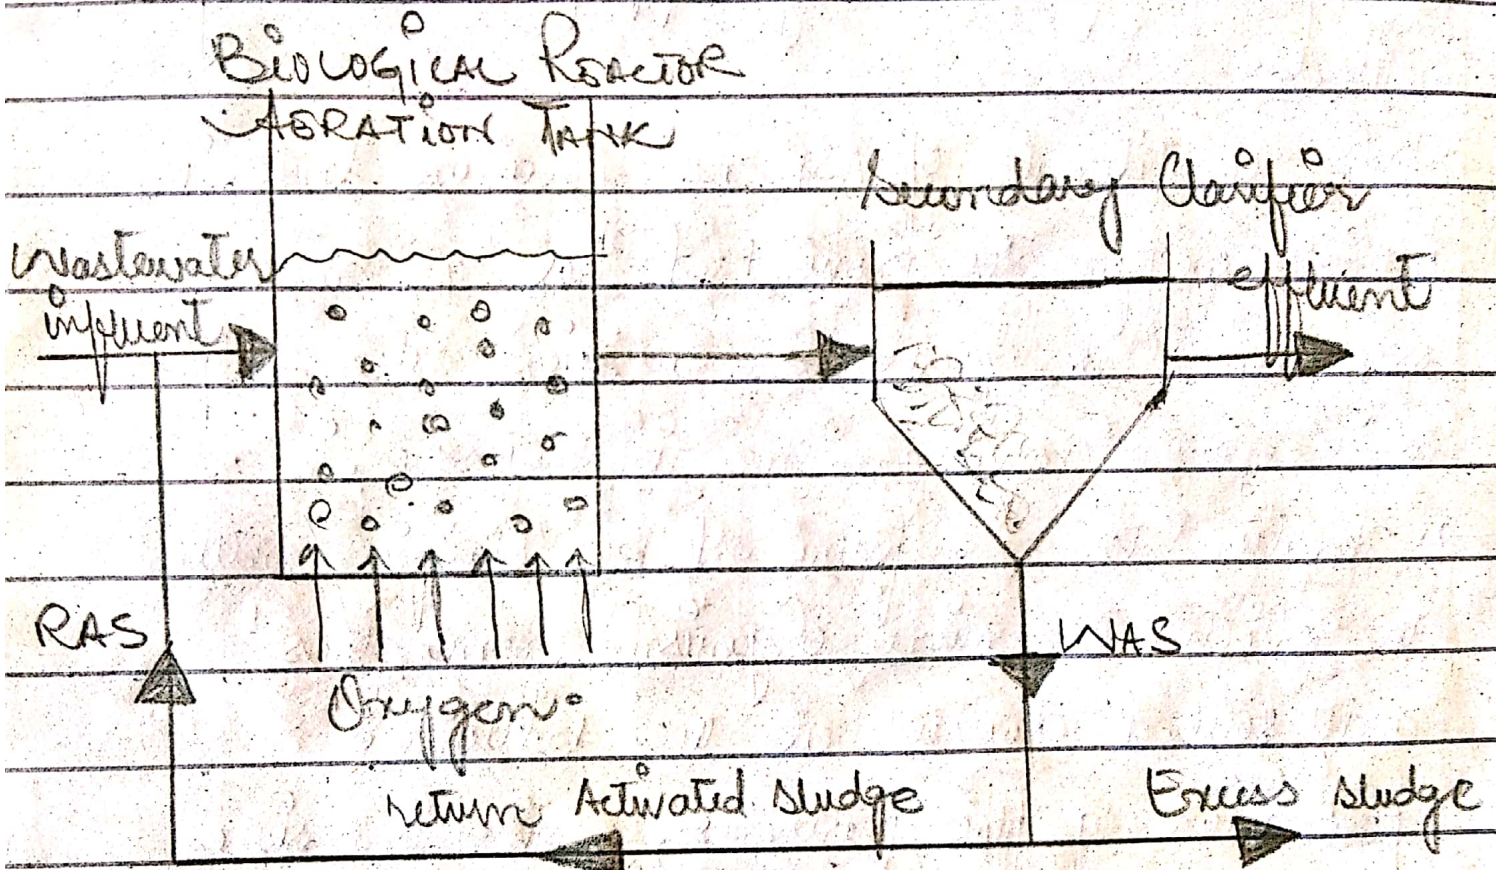 BIOLOGICAL REACTOR
AERATION TANK
Secondary Clarifier
Wastewater
influent
effluent
RAS
WAS
Oxygen
return Activated sludge
Excess sludge